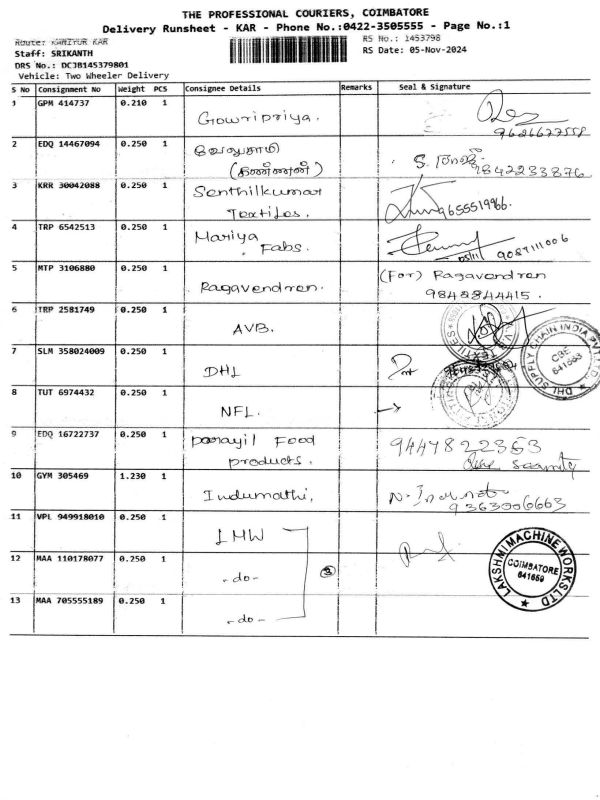 THE PROFESSIONAL COURIERS, COIMBATORE
Delivery Runsheet - KAR - Phone No.:0422-3505555 - Page No.:1
Route: KANIYUR KAR
RS No.: 1453798
Staff: SRIKANTH
RS Date: 05-Nov-2024
DRS No.: DCJB145379801
Vehicle: Two Wheeler Delivery
S No Consignment No Weight PCS Consignee Details Remarks Seal & Signature
1 GPM 414737 0.210 1 Gowripriya.
9626627558
2 EDQ 14467094 0.250 1 வேலுசாமி
(கண்ணன்)
9842233876
3 KRR 30042088 0.250 1 Senthilkumar
Textiles.
9655519966.
4 TRP 6542513 0.250 1 Mariya
Fabs.
9087111006
5 MTP 3106880 0.250 1 Ragavendren. (For) Ragavendren
9842844415.
6 TRP 2581749 0.250 1 AVB.
7 SLM 358024009 0.250 1 DHL
DHL SUPPLY CHAIN INDIA PVT
CBE
641663
8 TUT 6974432 0.250 1 NFL.
9 EDQ 16722737 0.250 1 Food
products.
9447822363
10 GYM 305469 1.230 1 Indumathi.
9363006663
11 VPL 949918010 0.250 1 LMW
LAKSHMI MACHINE WORKS LTD
COIMBATORE
641659
12 MAA 110178077 0.250 1 -do- 3
13 MAA 705555189 0.250 1 -do-